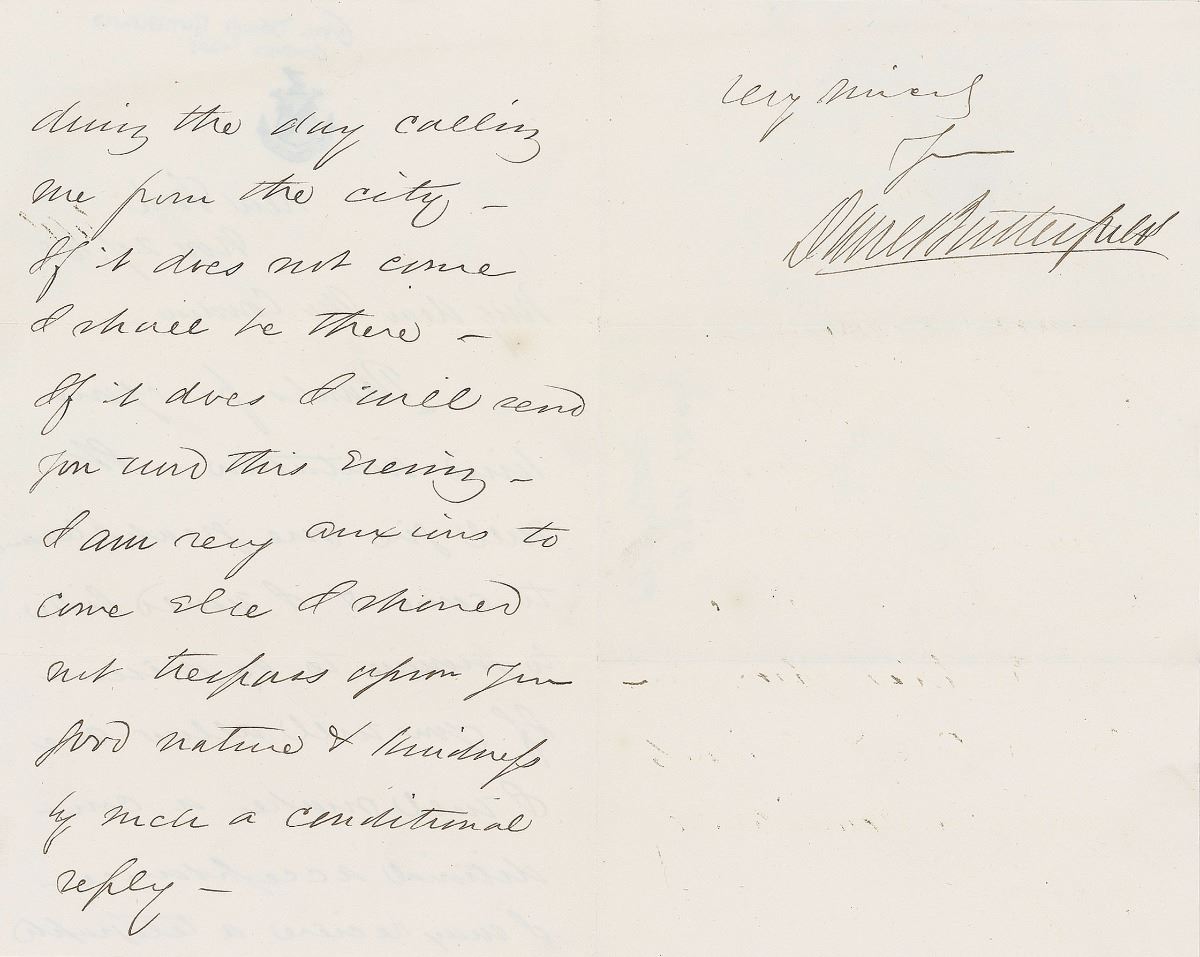 during the day calling
me from the city –
If it does not come
I shall be there –
If it does I will send
you word this Evening –
I am very anxious to
come Else I should
not trespass upon your
good nature & kindness
by such a conditional
reply –
Very sincerely
Yours
Danl Butterfield